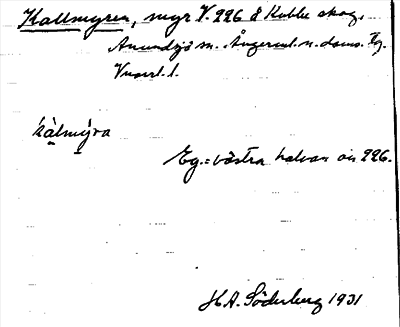 Kallmyren, myr V. 226 å Kubbe skog,
Anundsjö sn. Ångerml. n. doms. Hg.
Vnorrl. l.
kàlmýra
Eg. = västra halvan av 226.
H.A. Söderberg 1931